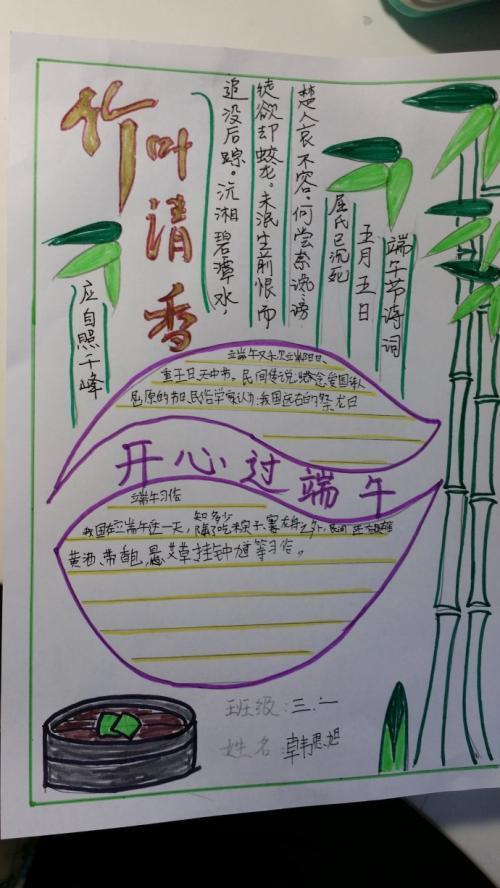 竹叶清香
端午节诗词
五月五日
屈氏已沉死
楚人哀不容。何尝奈谗谤
徒欲却蛟龙。未泯生前恨而
追没后踪。沅湘碧潭水，
应自照千峰
端午又
重五日、天中节。民间传说
屈原的节日、民俗学家认为我国远古的祭龙日
开心过端午
端午习俗
知多少
我国在端午这一天，除了吃粽子、赛龙舟之外，民间
黄酒、带香包、悬艾草挂钟馗等习俗。
班级：三.二
姓名：韩思旭